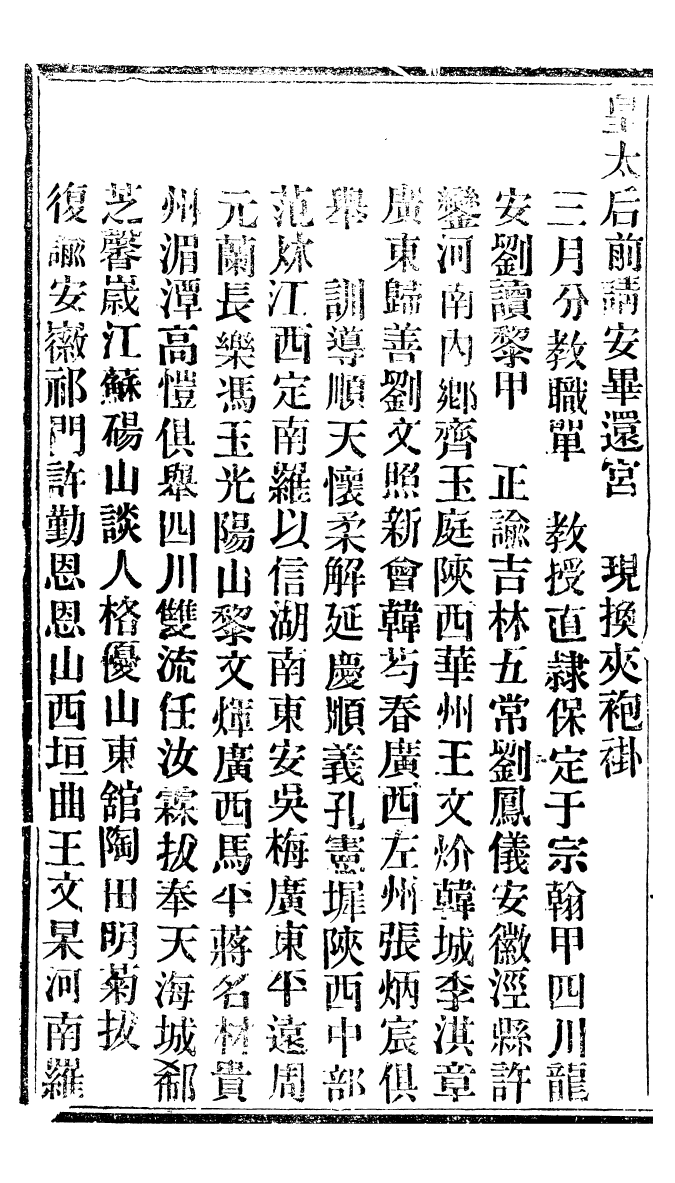 皇太后前請安畢還宮　現換夾袍褂
三月分教職單　教授直隸保定于宗翰甲四川龍
安劉讀黎甲　正諭吉林五常劉鳳儀安徽涇縣許
鑾河南內鄉齊玉庭陝西華州王文炌韓城李淇章
廣東歸善劉文照新會韓芶春廣西左州張炳宸俱
舉　訓導順天懷柔解延慶順義孔憲墀陝西中部
范烑江西定南羅以信湖南東安吳梅廣東平遠周
元蘭長樂馮玉光陽山黎文煇廣西馬平蔣名材貴
州湄潭高愷俱舉四川雙流任汝霖拔奉天海城郗
芝馨嵗江蘇碭山談人格優山東舘陶田明菊拔
復諭安徽祁門許勤恩恩山西垣曲王文杲河南羅